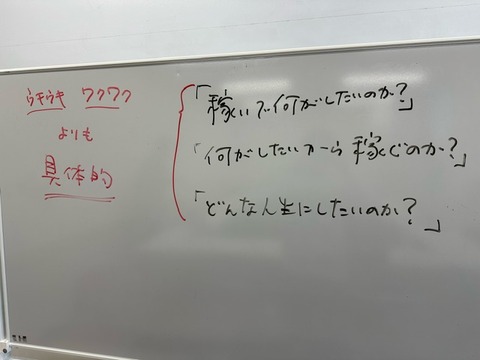 ウキウキ ワクワク
よりも
具体的
「稼いで何がしたいのか?」
「何がしたいから稼ぐのか?」
「どんな人生にしたいのか?」